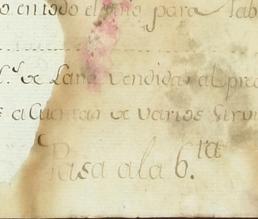 o en todo el año para lab
l.s de Lana vendidas al prec
s a cuentas de varios sirvi
Pasa a la 6.ra